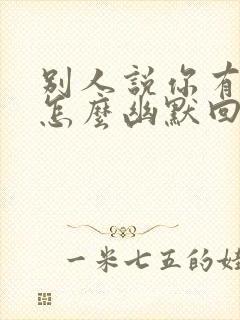 別人説你有
怎麼幽默回
一米七五的娃